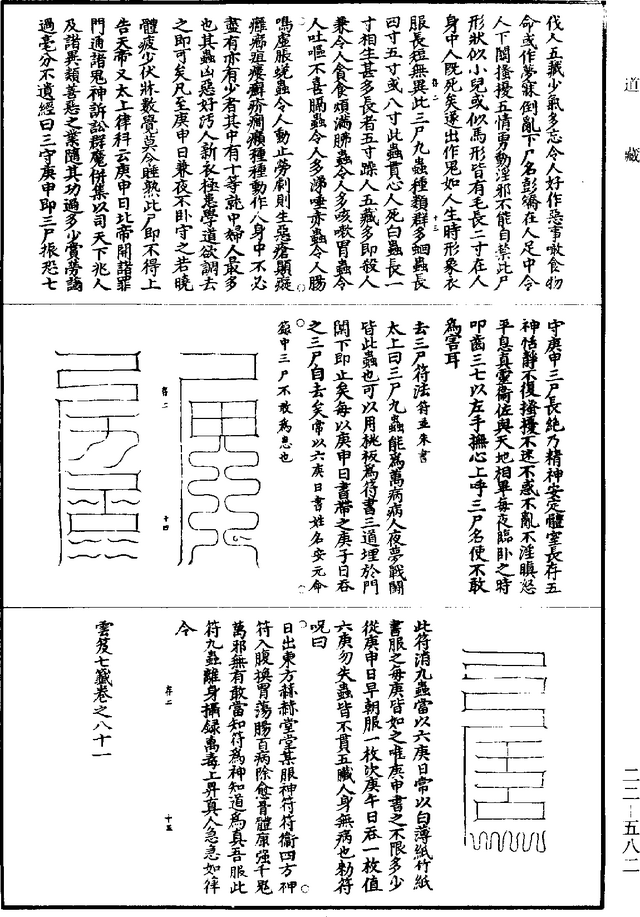 道藏
伐人五臟少氣多忘令人好作惡事噉食物
命或作夢寐倒亂下尸名彭矯在人足中令
人下關搔擾五情勇動淫邪不能自禁此尸
形狀似小兒或似馬形皆有毛長二寸在人
身中人既死矣遂出作鬼如人生時形象衣
服長短無異此三尸九蟲種類群多蛔蟲長
四寸五寸或八寸此蟲貫心人死白蟲長一
寸相生甚多長者五寸躁人五藏多即殺人
兼令人貪食煩滿肺蟲令人多咳嗽胃蟲令
人吐嘔不喜膈蟲令人多涕唾赤蟲令人腸
鳴虛脹蜣蟲令人動止勞劇則生惡瘡顛癡
癰癤疽瘻癬疥癇癩種種動作人身中不必
盡有亦有少者其中有十等就中婦人最多
也其蟲凶惡好汚人新衣極患學道欲調去
之即可矣凡至庚申日兼夜不卧守之若曉
體疲少伏牀數覺莫令睡熟此尸即不得上
告天帝又太上律科云庚申日北帝開諸罪
門通諸鬼神訴訟群魔併集以司天下兆人
及諸異類善惡之業隨其功過多少賞勞謫
過毫分不遺經曰三守庚申即三尸振恐七
守庚申三尸長絶乃精神安定體室長存五
神恬靜不復搔擾不迷不惑不亂不淫瞋怒
平息真靈衞佐與天地相畢每夜臨卧之時
叩齒三七以左手撫心上呼三尸名使不敢
爲害耳
去三尸符法符並朱書
太上曰三尸九蟲能爲萬病病人夜夢戰鬪
皆此蟲也可以用桃板爲符書三道埋於門
閫下即止矣每以庚申日書帶之庚子日吞
之三尸自去矣常以六庚日書姓名安元命
籙中三尸不敢爲患也
存二
十四
此符消九蟲當以六庚日常以白薄紙竹紙
書服之每庚皆如之唯庚申書之不限多少
從庚申日早朝服一枚次庚午日吞一枚值
六庚勿失蟲皆不貫五臟人身無病也勑符
呪曰
日出東方赫赫堂堂某服神符符衞四方神
符入腹換胃蕩腸百病除愈膏體康强千鬼
萬邪無有敢當知符爲神知道爲真吾服此
符九蟲離身攝録萬毒上昇真人急急如律
令
存二
十五
雲笈七籤卷之八十一
二二—五八二